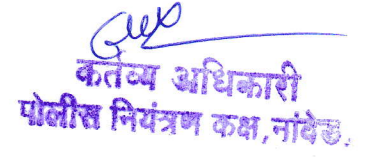 कर्तव्य अधिकारी
पोलीस नियंत्रण कक्ष, नांदेड.